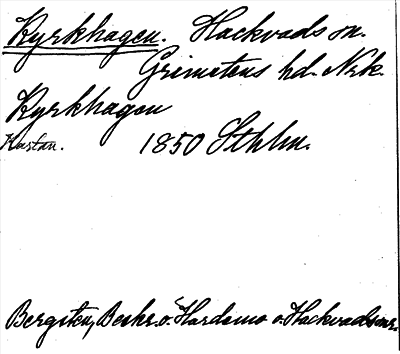 Kyrkhagen. Hackvads sn.
Grimstens hd. Nrk.
Kyrkhagen
Kartan. 1850 Sthlm.
Bergsten, Beskr. o. Hardemo o. Hackvads snr.